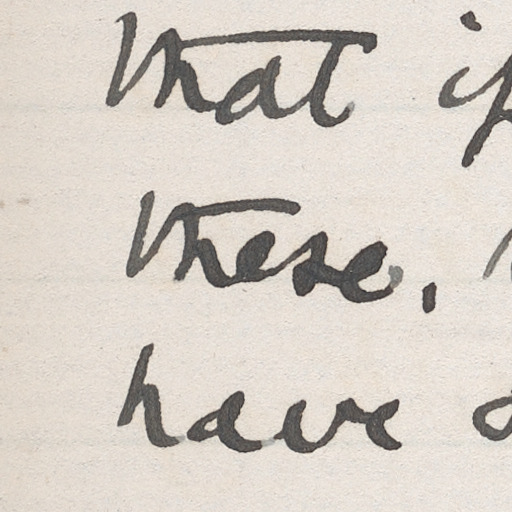 that if
these,
have